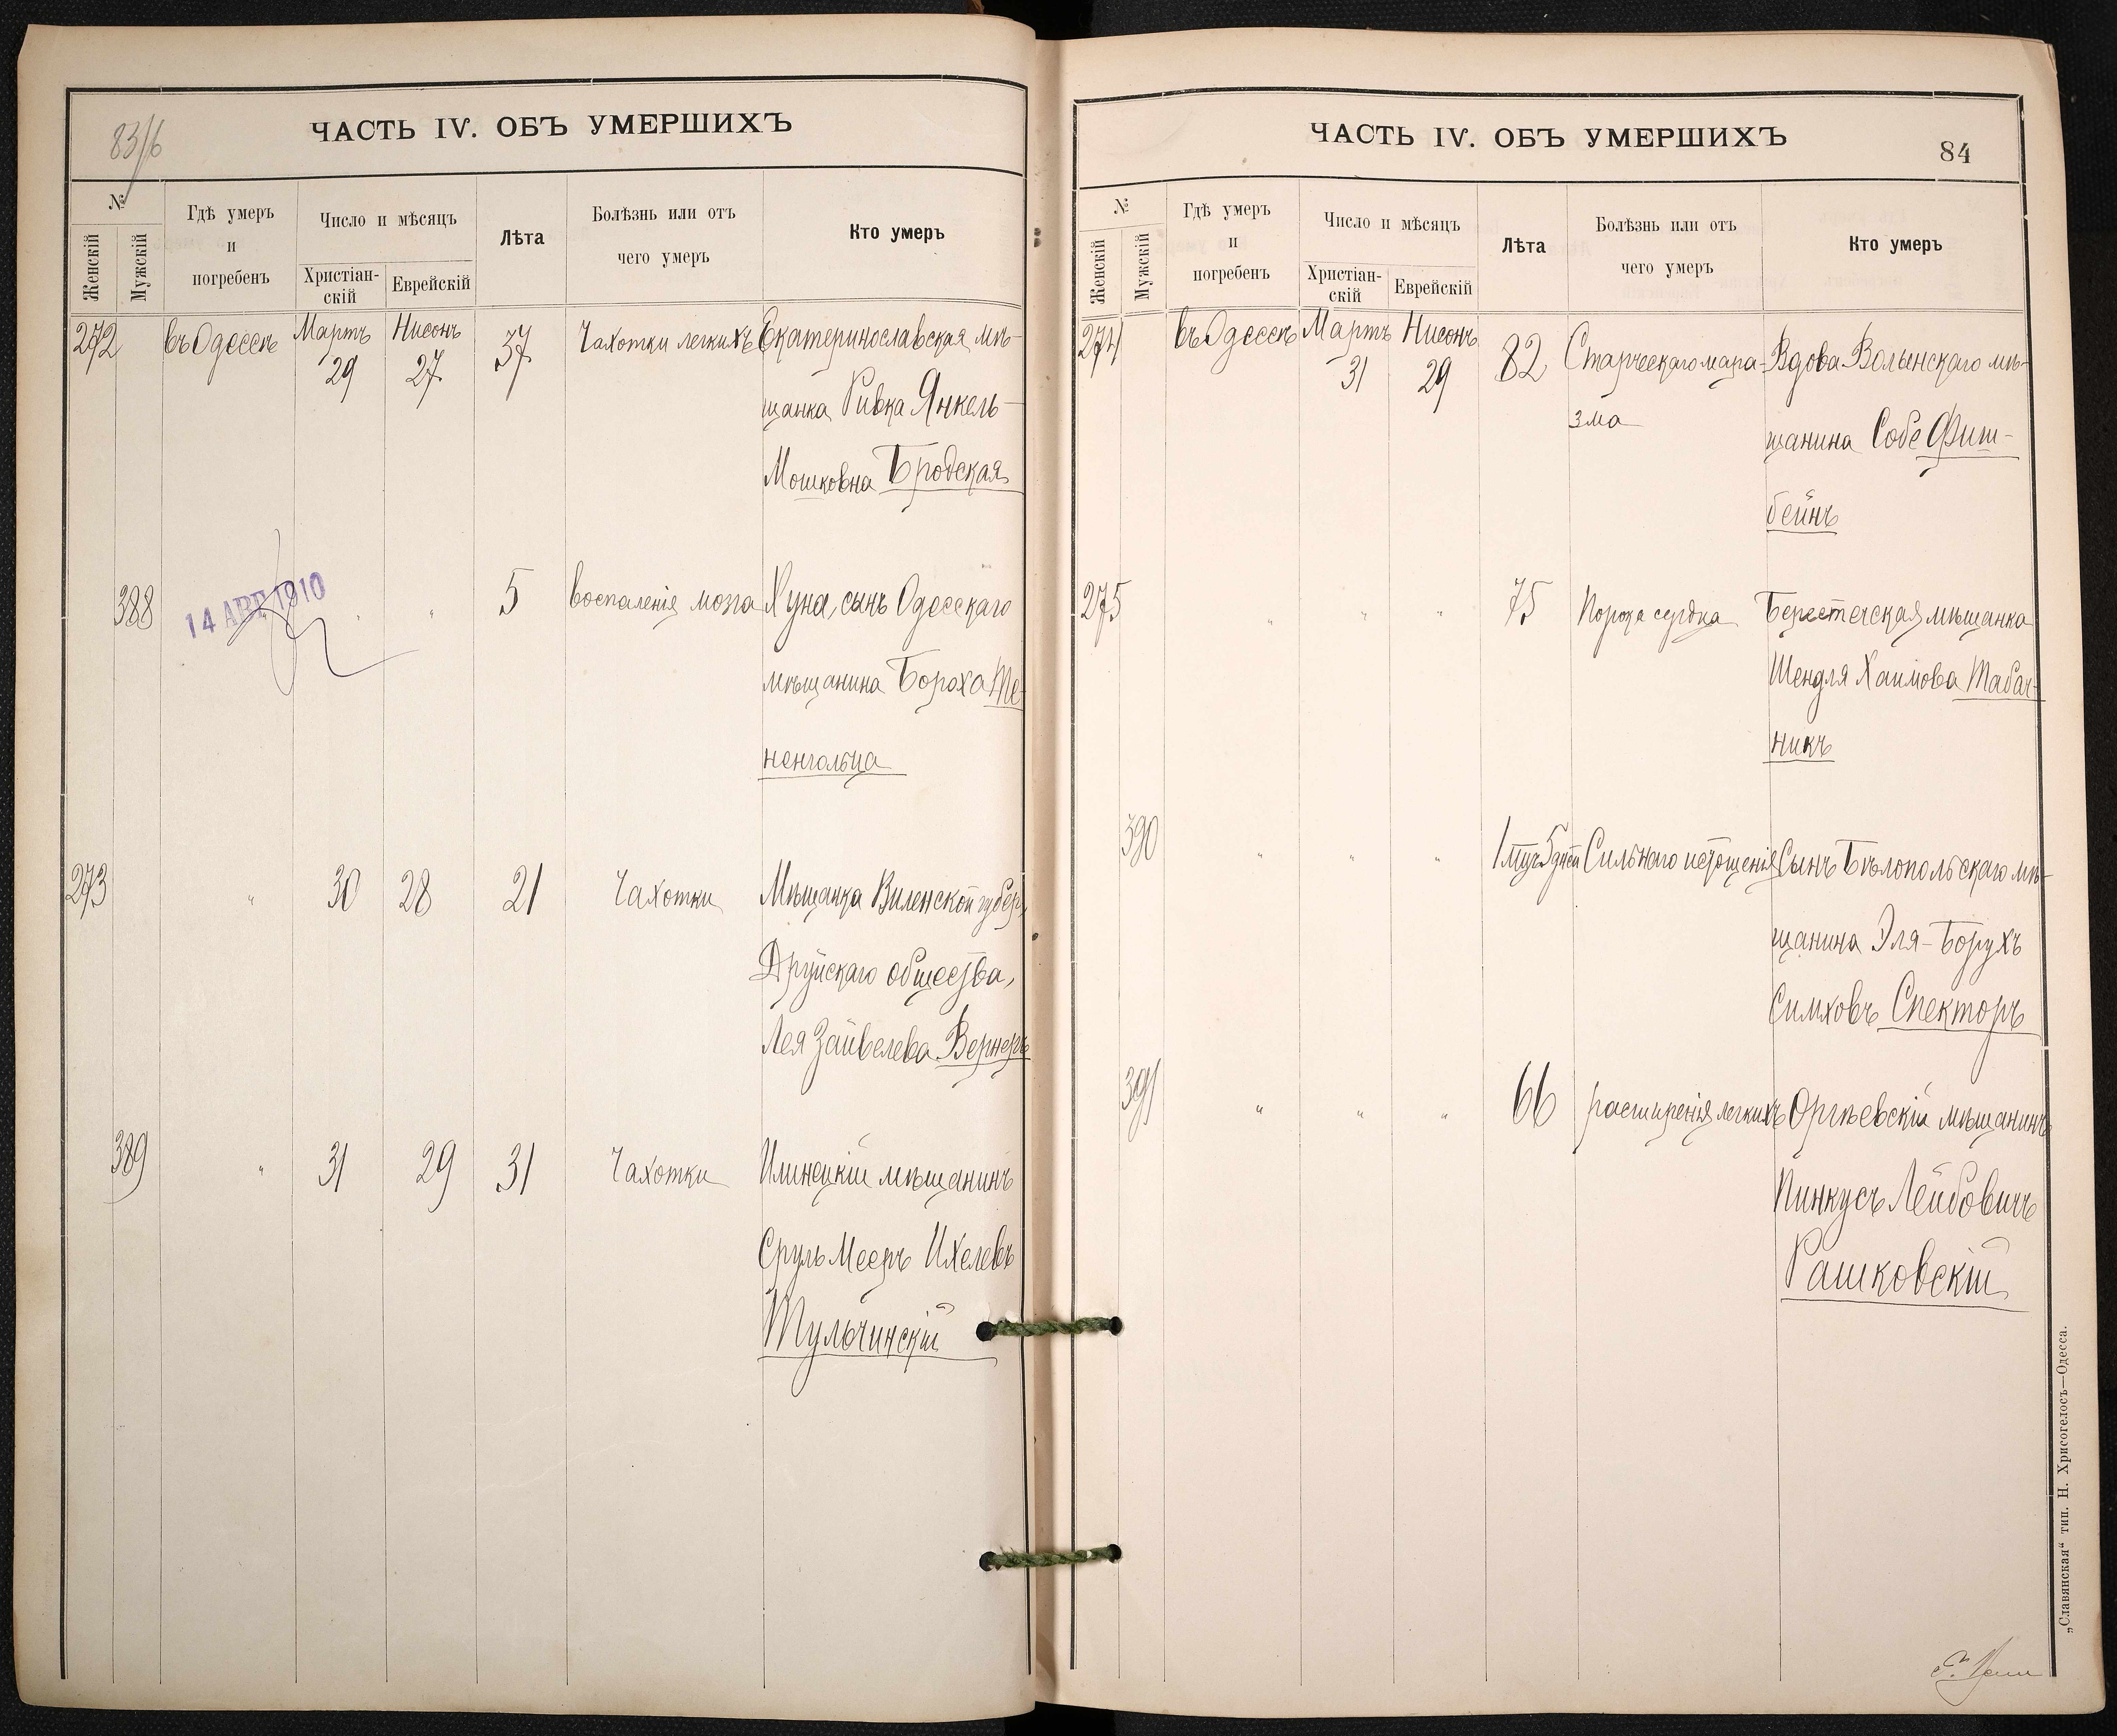 83/б
ЧАСТЬ IV. ОБЪ УМЕРШИХЪ
№
Женскій
Мужскій
Гдѣ умеръ
и
погребенъ
Число и мѣсяцъ
Христіан-
скій
Еврейскій
Лѣта
Болѣзнь или отъ
чего умеръ
Кто умеръ
272 въ Одессѣ Мартъ 29 Нисонъ 27 37 Чахотки легкихъ Екатеринославская мѣ-
щанка Ривка Янкель-
Мошковна Бродская
388 " " " 5 воспаленія мозга Хуна, сынъ Одесскаго
14 АВГ 1910
мѣщанина Бороха Те-
ненгольца
273 " 30 28 21 Чахотки Мѣщанка Виленской губер.
Друйскаго общества,
Лея Зайвелева Вернеръ
389 " 31 29 31 Чахотки Илинецкій мѣщанинъ
Сруль Мееръ Ихелевъ
Тульчинскій
ЧАСТЬ IV. ОБЪ УМЕРШИХЪ
84
№
Женскій
Мужскій
Гдѣ умеръ
и
погребенъ
Число и мѣсяцъ
Христіан-
скій
Еврейскій
Лѣта
Болѣзнь или отъ
чего умеръ
Кто умеръ
274 въ Одессѣ Мартъ 31 Нисонъ 29 82 Старческаго мара- Вдова Волынскаго мѣ-
зма
щанина Собе Фиш-
бейнъ
275 " " " 75 Порока сердца Берестечская мѣщанка
Шендля Хаимова Табач-
никъ
390 " " " 1 мцъ 5 дней Сильнаго истощенія Сынъ Бѣлопольскаго мѣ-
щанина Эля-Борухъ
Симховъ Спекторъ
391 " " " 66 расширенія легкихъ Оргѣевскій мѣщанинъ
Пинкусъ Лейбовичъ
Рашковскій
„Славянская“ тип. Н. Хрисогелосъ—Одесса.